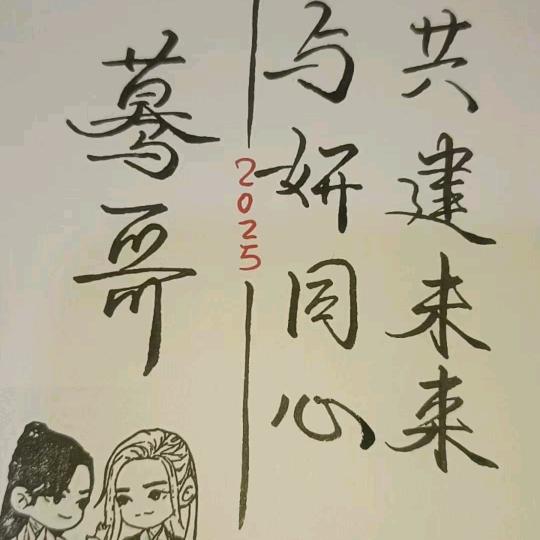 蓦哥
2025
与妍同心
共建未来